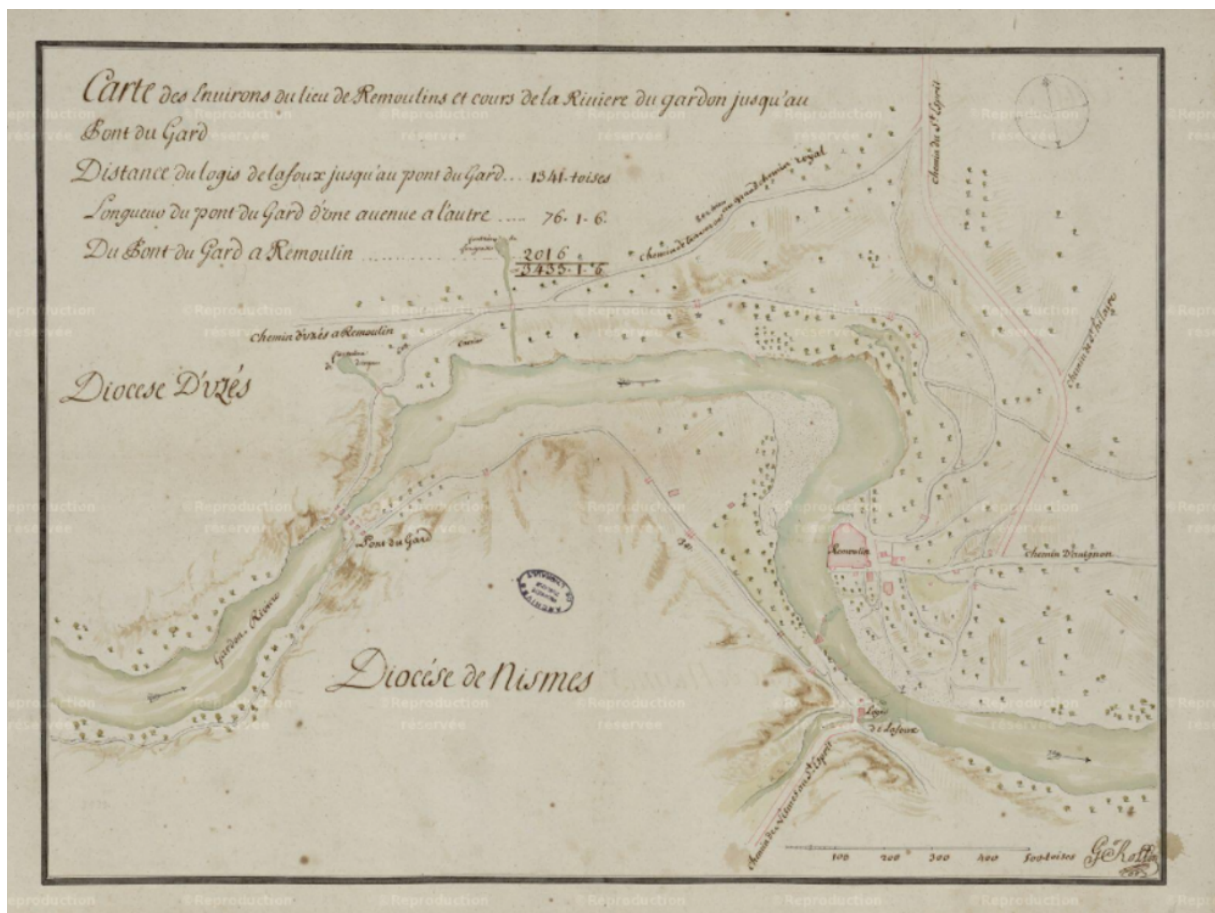 Carte des Environs du lieu de Remoulins et cours de la Riviere du gardon jusqu'au
Pont du Gard
Distance du logis de lafoux jusqu'au pont du Gard... 1341 toises
Longueur du pont du Gard d'une auenue a l'autre ..... 76. 1. 6.
Du Pont du Gard a Remoulin ............... 2016
3433. 1. 6
Chemin du St. Esprit
Chemin d'uzés a Remoulin
Chemin de St. hilaire
Diocese D'uzés
Pont du Gard
Remoulin
Chemin D'auignon
Gardon Riviere
Diocése de Nismes
Logis
de Lafoux
Chemin de Nismes au St. Esprit
100 200 300 400 500 toises
©Reproduction
réservée